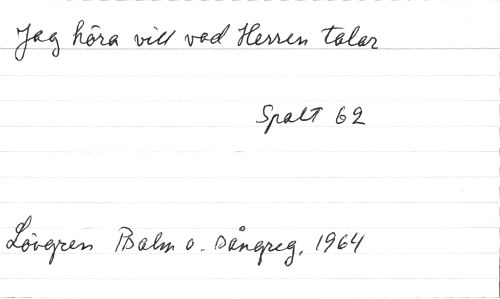 Jag höra vill vad Herren talar
Spalt 62
Lövgren Psalm o. sångreg. 1964